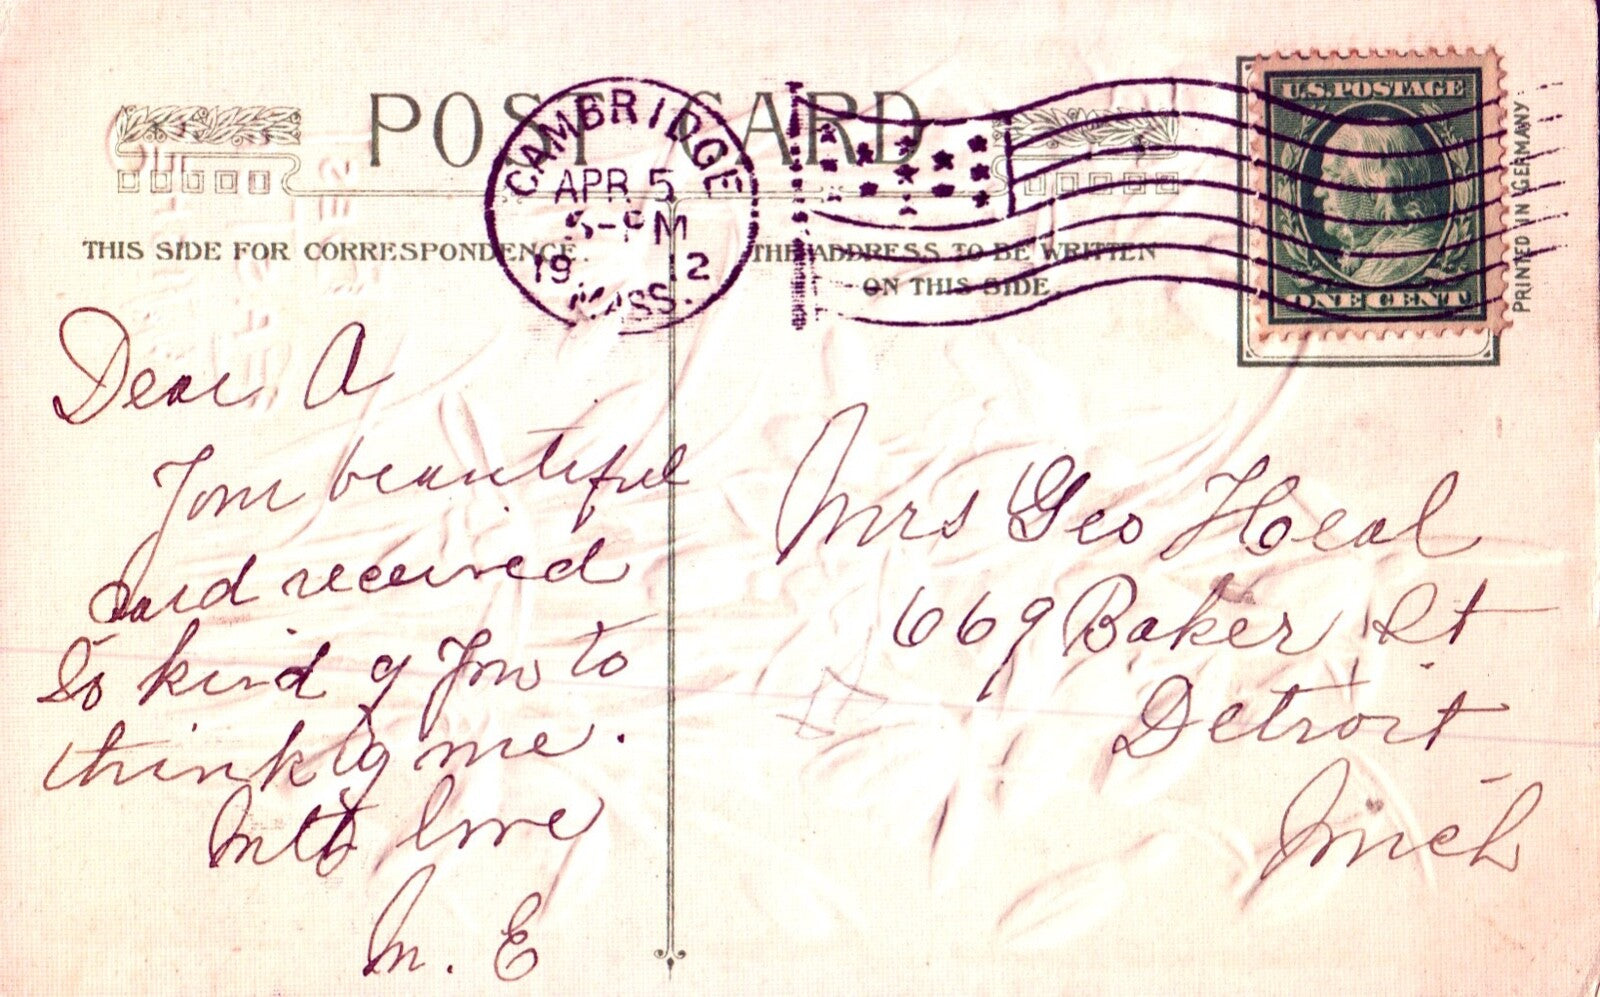 POST CARD
CAMBRIDGE
APR 5
5-PM
1912
MASS.
U.S. POSTAGE
ONE CENT
PRINTED IN GERMANY
THIS SIDE FOR CORRESPONDENCE.
THE ADDRESS TO BE WRITTEN
ON THIS SIDE
Dear A
Your beautiful
Card received
So kind of you to
think of me.
With love
M. E
Mrs Geo Heal
669 Baker St
Detroit
Mich